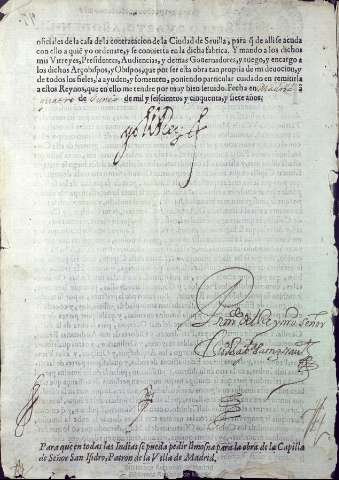 oficiales de la casa de la contratacion de la Ciudad de Sevilla, para q̃ de alli se acuda
con ello a quiẽ yo ordenare, y se convierta en la dicha fabrica. Y mando a los dichos
mis Virreyes, Presidentes, Audiencias, y demas Governadores, y ruego, y encargo a
los dichos Arçobispos, y Obispos, que por ser esta obra tan propria de mi devocion, y
de todos los fieles, a ayuden, y fomenten, poniendo particular cuidado en remitirla
a estos Reynos, que en ello me tendre por muy bien servido. Fecha en Madrid a
quatro de Junio de mil y seiscientos y cinquenta y siete años,
yo el Rey
Por mdo del Rey nro Señor
Para que en todas las Indias se pueda pedir limosna para la obra de la Capilla
de Señor San Isidro, Patron de la Villa de Madrid.